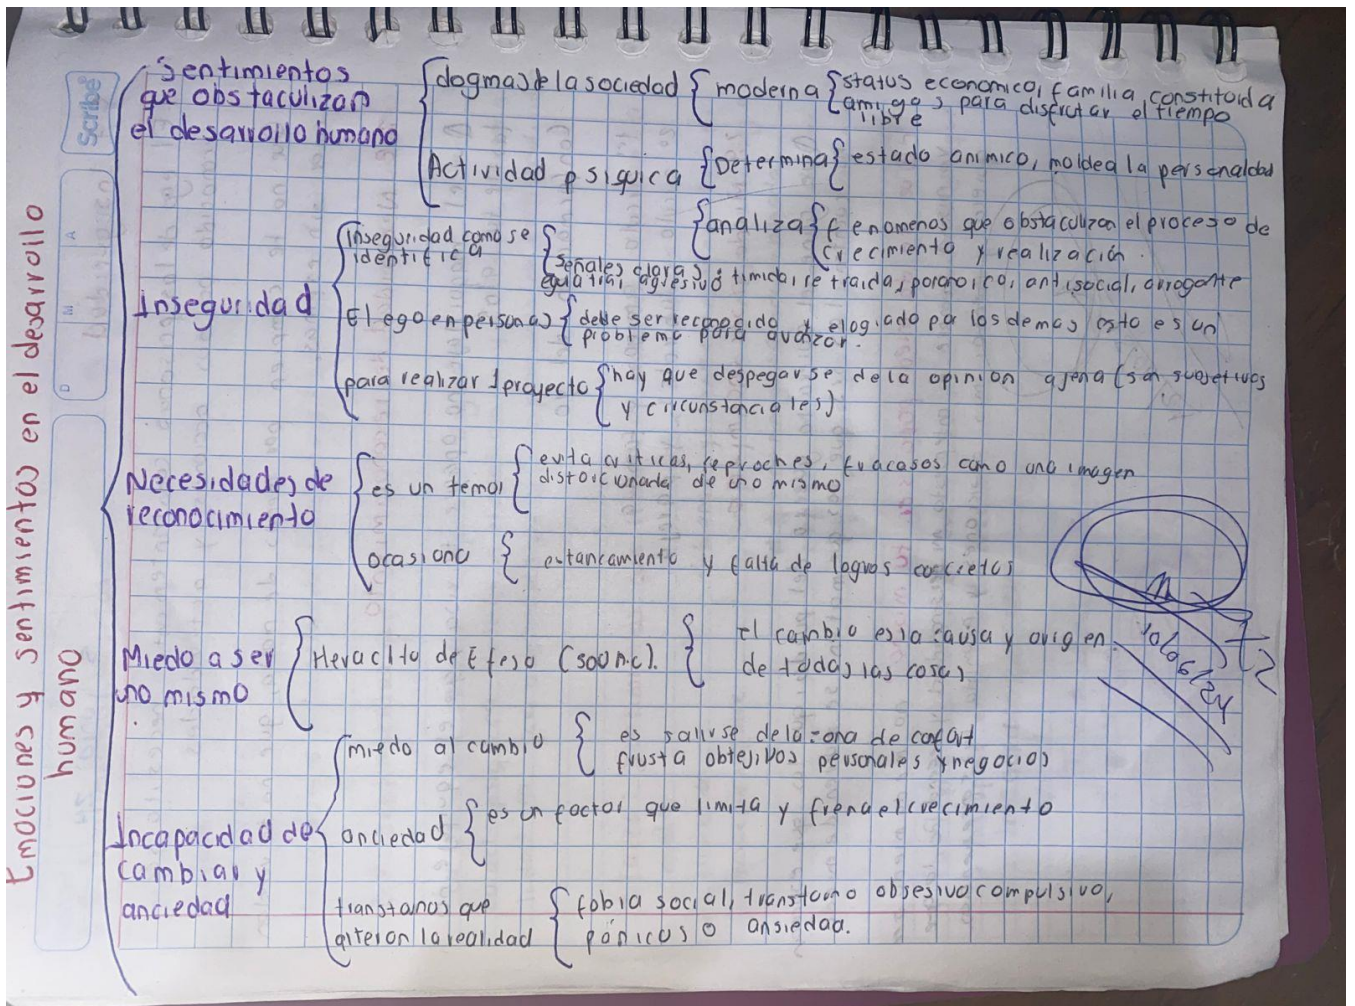 Emociones y sentimientos en el desarrollo
humano
Scribe
Sentimientos
que obstaculizan
el desarrollo humano
dogmas de la sociedad
moderna
status economico, familia constituida
amigos para disfrutar el tiempo
libre
Actividad psiquica
Determina
estado animico, moldea la personalidad
analiza
fenomenos que obstaculizan el proceso de
crecimiento y realización.
Inseguridad
Inseguridad como se
identifica
señales claras: timida, retraida, paranoico, antisocial, arrogante
agresivo
El ego en personas
debe ser reconocido y elogiado por los demas esto es un
problema para avanzar.
para realizar 1 proyecto
hay que despegarse de la opinion ajena (son subjetivos
y circunstanciales)
Necesidades de
reconocimiento
es un temor
evita criticas, reproches, fracasos como una imagen
distorcionada de uno mismo
ocasiona
estancamiento y falta de logros concretos
Miedo a ser
uno mismo
Heraclito de Efeso (500 n.c).
El cambio es la causa y origen
de todas las cosas
10/06/24
Incapacidad de
cambiar y
anciedad
miedo al cambio
es salirse de la zona de confort
frusta objetivos personales y negocios
anciedad
es un factor que limita y frena el crecimiento
transtornos que
alteran la realidad
fobia social, transtorno obsesivo compulsivo,
panicos o ansiedad.